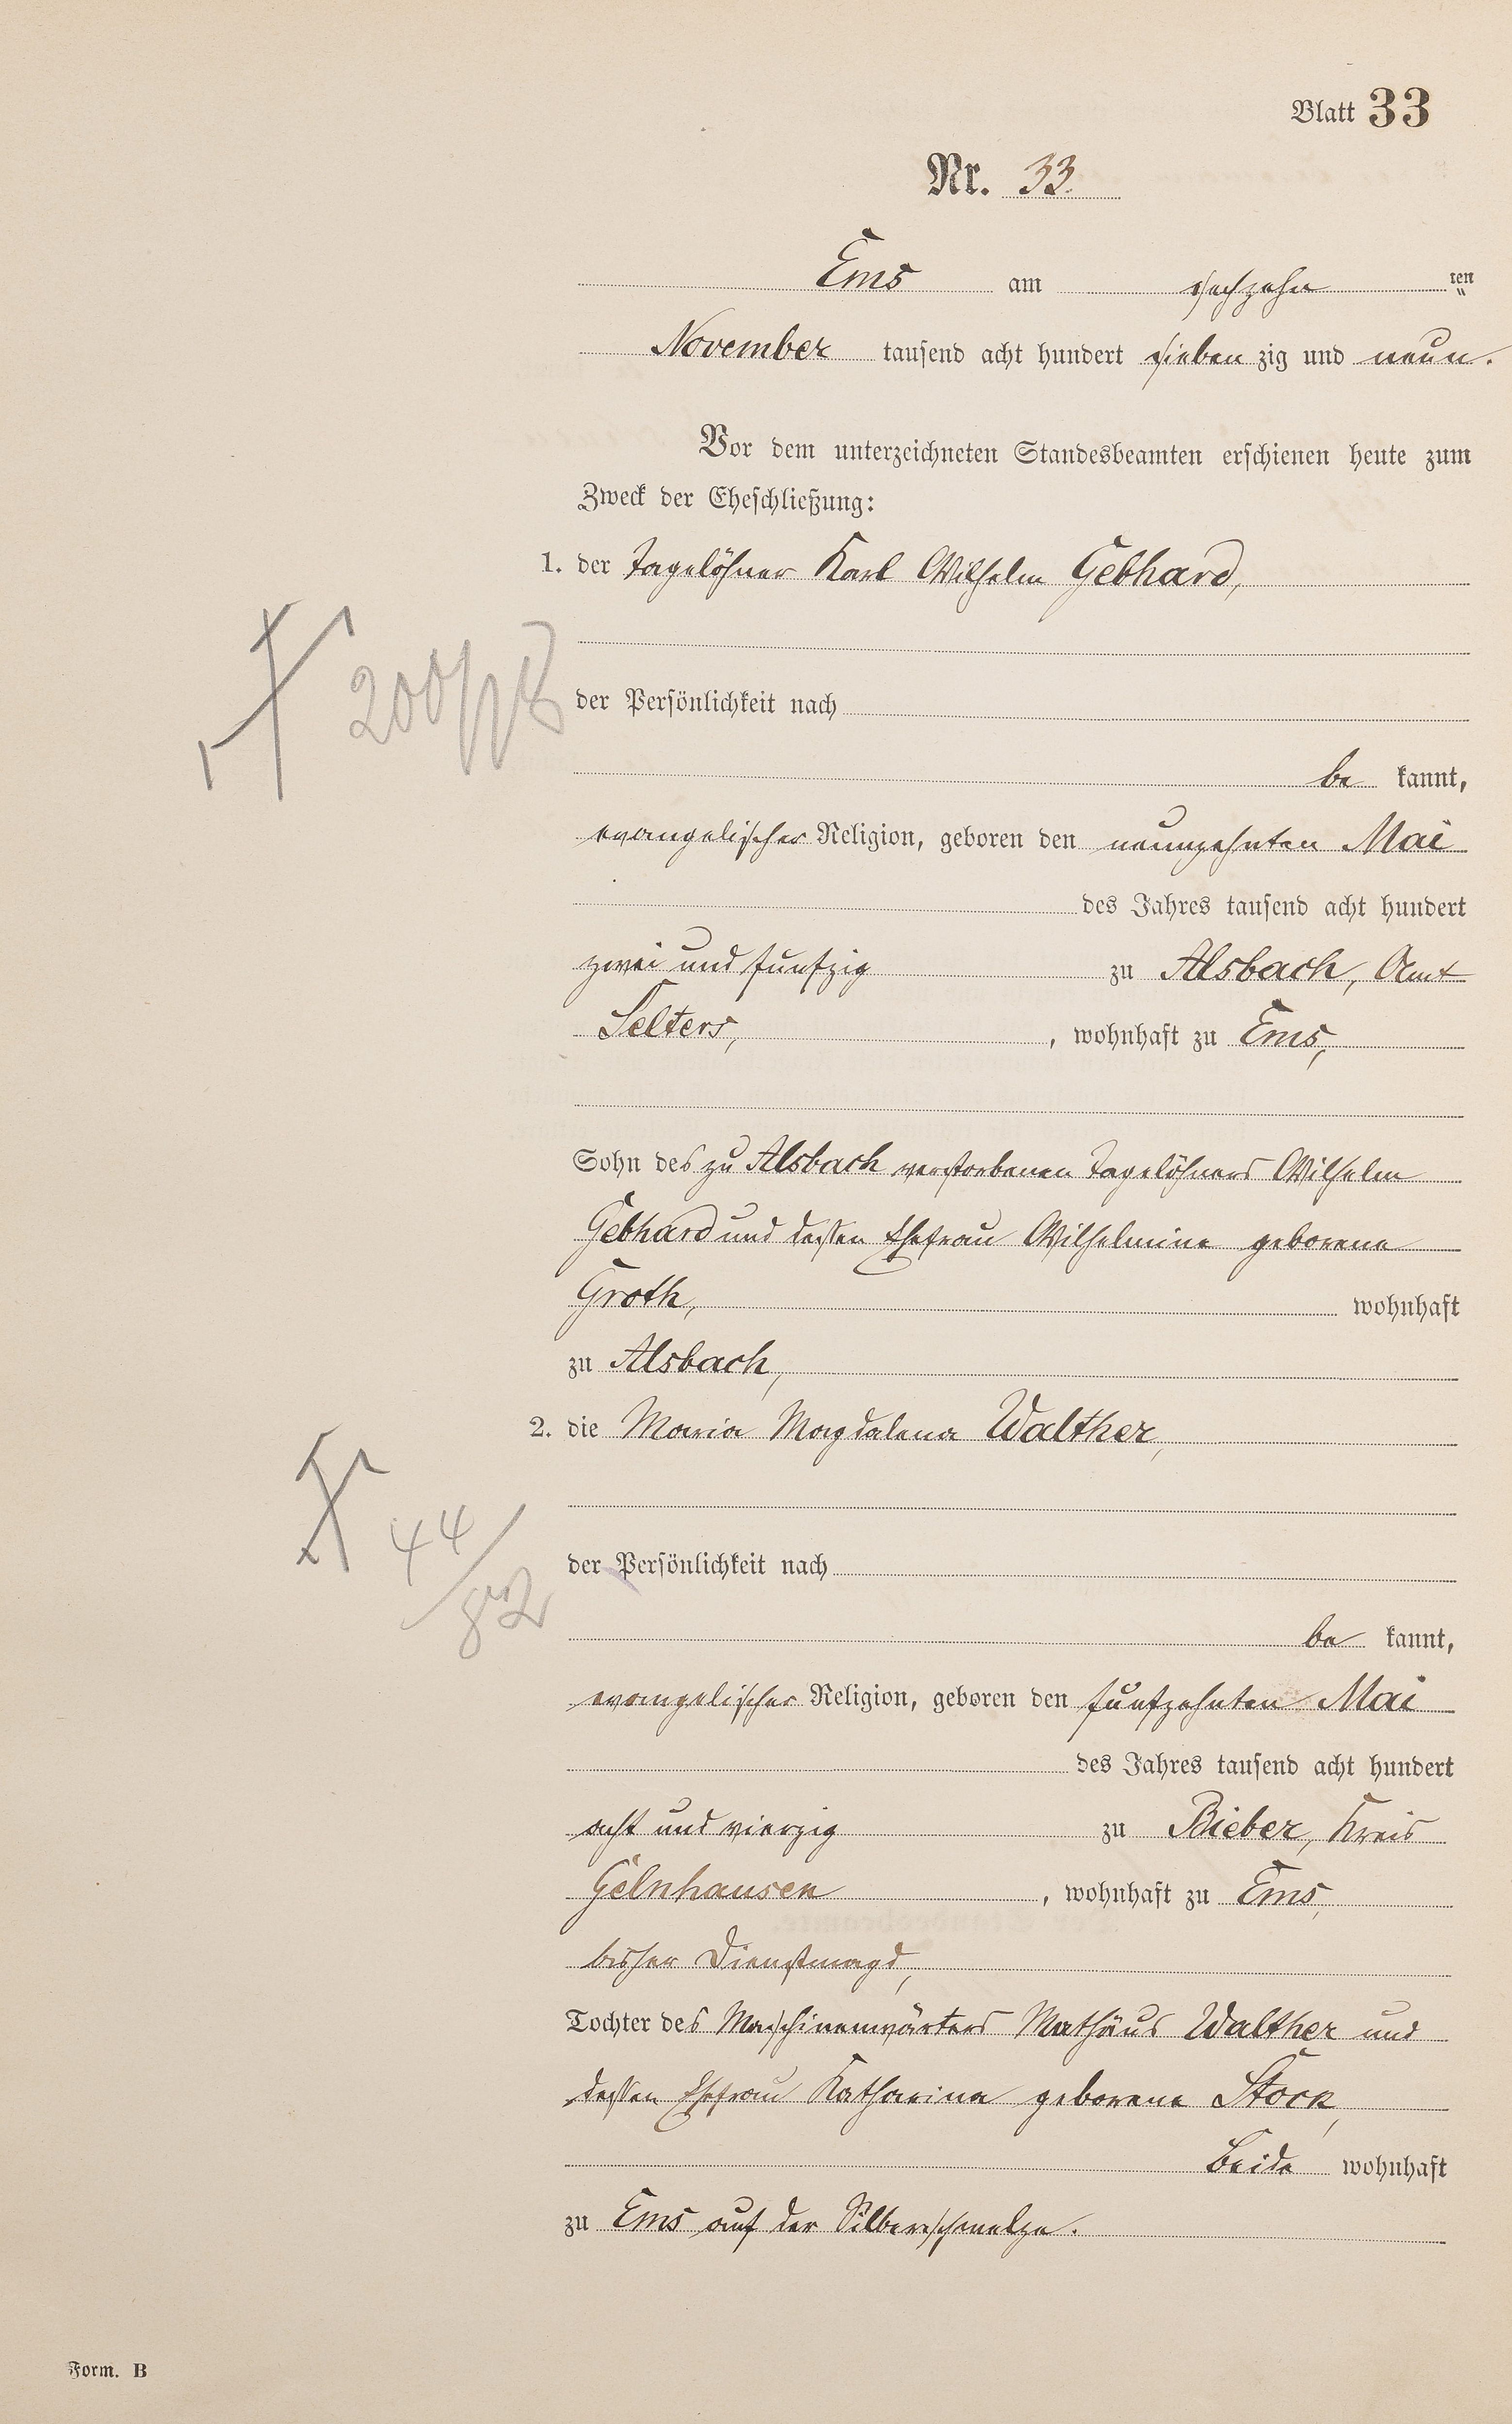 Blatt 33
Nr. 33.
Ems am sechzehn ten
November tausend acht hundert sieben zig und neun.
Vor dem unterzeichneten Standesbeamten erschienen heute zum
Zweck der Eheschließung:
1. der Tagelöhner Karl Wilhelm Gebhard,
der Persönlichkeit nach
be kannt,
evangelischer Religion, geboren den neunzehnten Mai
des Jahres tausend acht hundert
zwei und fünfzig zu Alsbach, Amt
Selters, , wohnhaft zu Ems,
Sohn des zu Alsbach verstorbenen Tagelöhners Wilhelm
Gebhard und dessen Ehefrau Wilhelmine geborene
Groth, wohnhaft
zu Alsbach,
2. die Maria Magdalena Walther,
44/82
der Persönlichkeit nach
be kannt,
evangelischer Religion, geboren den fünfzehnten Mai
des Jahres tausend acht hundert
acht und vierzig zu Bieber, Kreis
Gelnhausen , wohnhaft zu Ems,
bisher Dienstmagd,
Tochter des Maschinenwärters Mathäus Walther und
dessen Ehefrau Katharina geborene Stock,
Beide wohnhaft
zu Ems auf der Silberschmelze.
Form. B